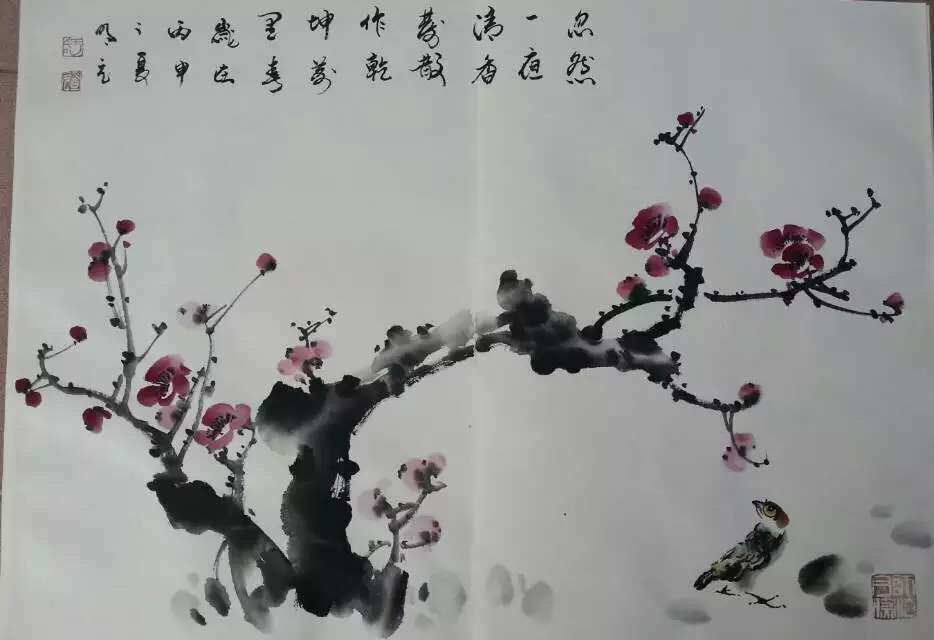 忽然
一夜
清香
發散
作乾
坤萬
里春
歲在
丙申
之夏